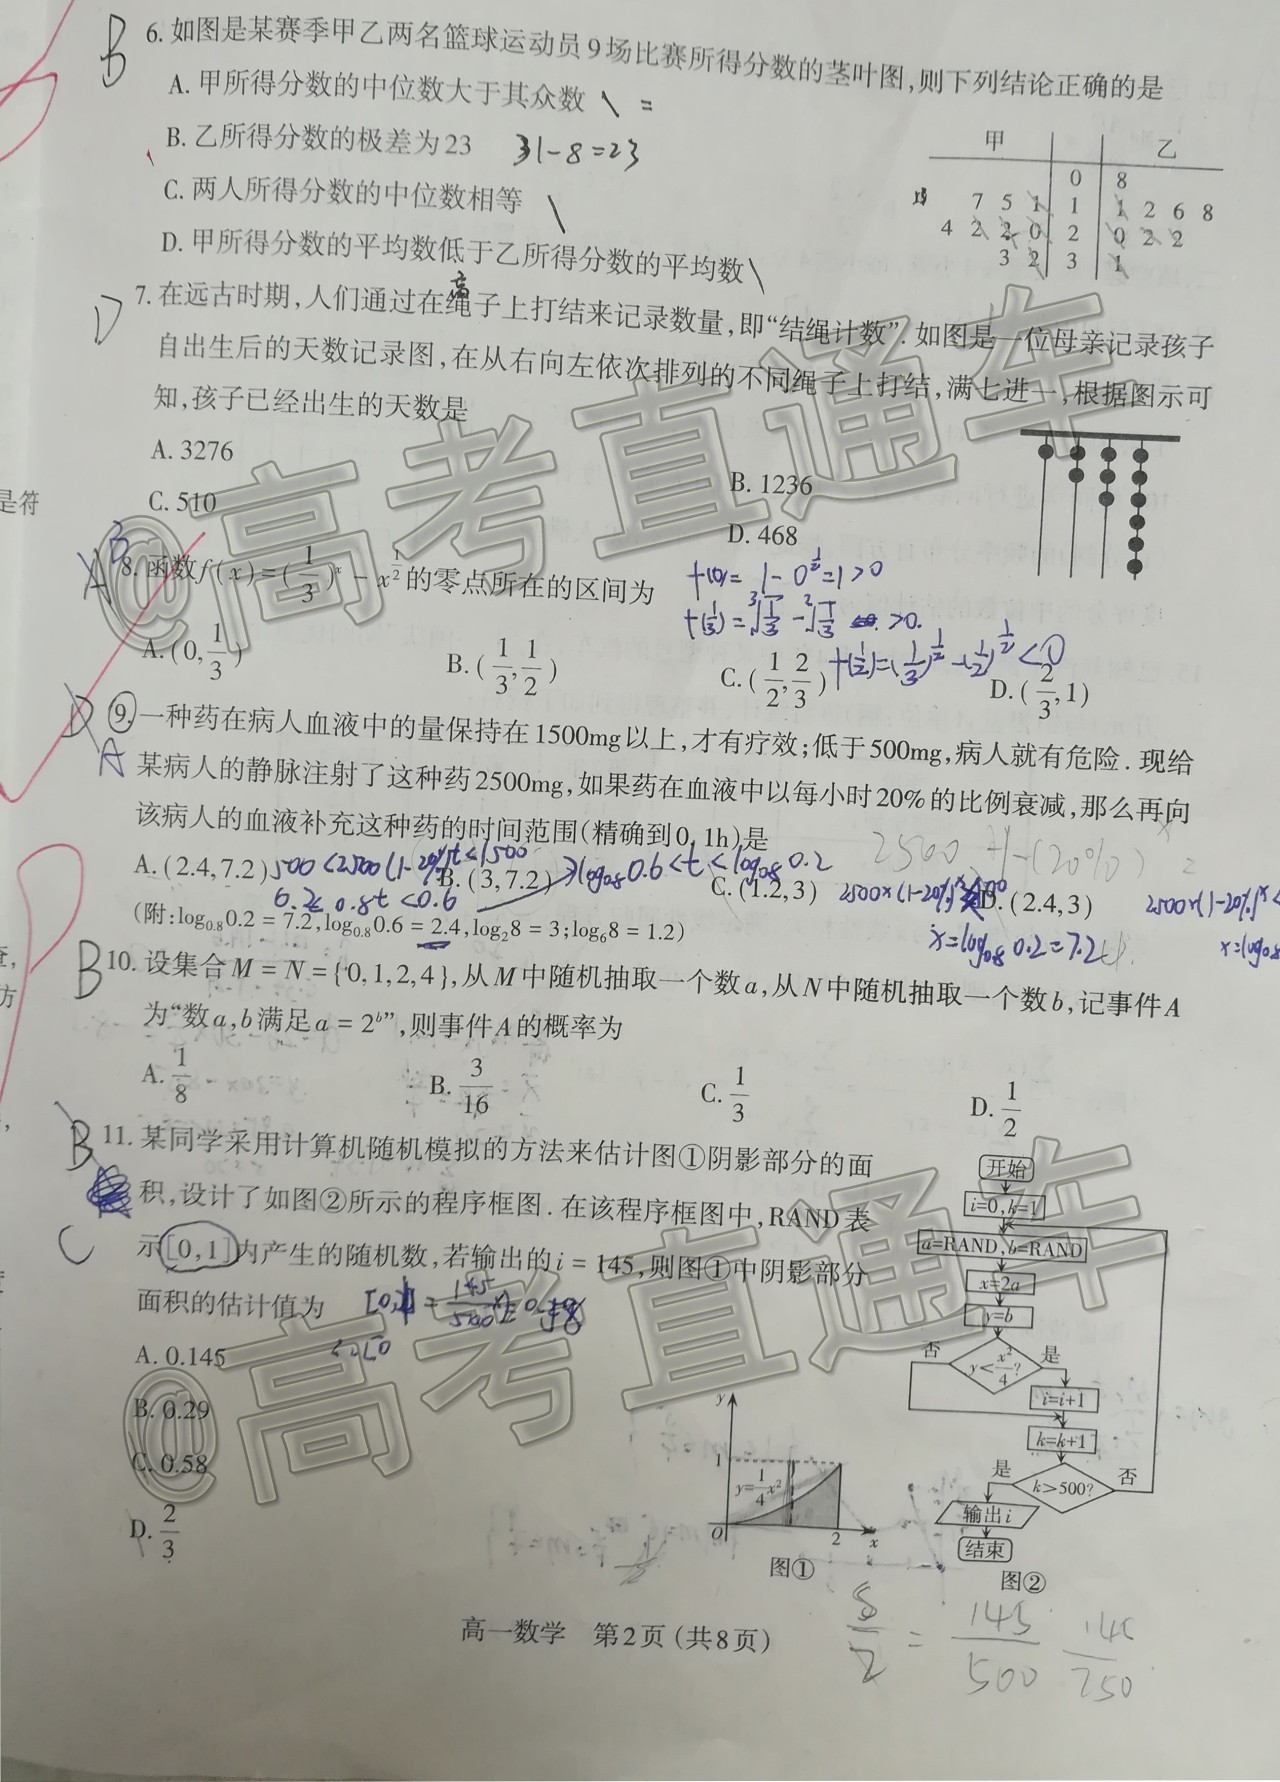 B 6. 如图是某赛季甲乙两名篮球运动员9场比赛所得分数的茎叶图,则下列结论正确的是
A. 甲所得分数的中位数大于其众数 \ =
B. 乙所得分数的极差为23 31-8=23
C. 两人所得分数的中位数相等 \
D. 甲所得分数的平均数低于乙所得分数的平均数 \
高
甲 乙
0 8
7 5 1 1 1 2 6 8
4 2 2 0 2 0 2 2
3 2 3 1
D 7. 在远古时期,人们通过在绳子上打结来记录数量,即“结绳计数”. 如图是一位母亲记录孩子
自出生后的天数记录图,在从右向左依次排列的不同绳子上打结,满七进一,根据图示可
知,孩子已经出生的天数是
A. 3276
B. 1236
C. 510
D. 468
是符
A B 8. 函数f(x)=(1/3)^x-x^(1/2)的零点所在的区间为
f(0)=1-0^(1/2)=1>0
f(1/3)=∛(1/3)-√(1/3) >0.
f(1/2)=(1/3)^(1/2)-(1/2)^(1/2)<0
A. (0,1/3)
B. (1/3,1/2)
C. (1/2,2/3)
D. (2/3,1)
D 9. 一种药在病人血液中的量保持在1500mg以上,才有疗效;低于500mg,病人就有危险. 现给
A 某病人的静脉注射了这种药2500mg,如果药在血液中以每小时20%的比例衰减,那么再向
该病人的血液补充这种药的时间范围(精确到0.1h)是
A. (2.4,7.2) 500<2500(1-20%)^t<1500
B. (3,7.2) log0.8 0.6<t<log0.8 0.2
C. (1.2,3)
D. (2.4,3)
0.2≤0.8^t<0.6
x=log0.8 0.2=7.2
(附:log₀.₈0.2=7.2,log₀.₈0.6=2.4,log₂8=3;log₆8=1.2)
B 10. 设集合M=N={0,1,2,4},从M中随机抽取一个数a,从N中随机抽取一个数b,记事件A
为“数a,b满足a=2^b”,则事件A的概率为
A. 1/8
B. 3/16
C. 1/3
D. 1/2
B 11. 某同学采用计算机随机模拟的方法来估计图①阴影部分的面
积,设计了如图②所示的程序框图. 在该程序框图中,RAND表
C 示[0,1]内产生的随机数,若输出的i=145,则图①中阴影部分
面积的估计值为
A. 0.145
B. 0.29
C. 0.58
D. 2/3
开始
i=0,k=1
a=RAND,b=RAND
x=2a
y=b
否 y<x²/4? 是
i=i+1
k=k+1
是 k>500? 否
输出i
结束
图②
y
1
y=1/4x²
O 2 x
图①
S/2 = 145/500
高一数学 第2页(共8页)
@高考直通车
@高考直通车